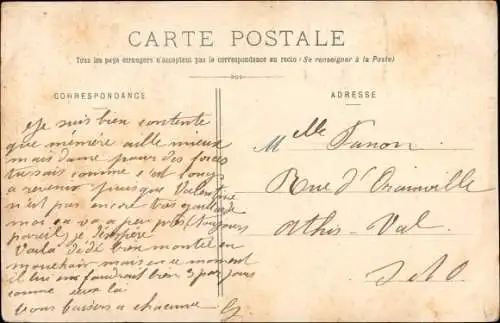 CARTE POSTALE
Tous les pays étrangers n'acceptent pas la correspondance au recto (Se renseigner à la Poste)
CORRESPONDANCE
ADRESSE
Je suis bien contente
que mémère aille mieux
mais dame pour des forces
tu sais comme c'est long
a revenir puisque Valentine
n'est pas encore très gaillarde
moi ça va a peu près (toujours
pareil) je l'espère
Voilà Dédé bien monté en
mouchoir mais en ce moment
il lui en faudrait bien 3 par jours
comme aux
bons baisers a chacune
Melle Fanon
Rue d'Orainville
Athis-Val
S et O